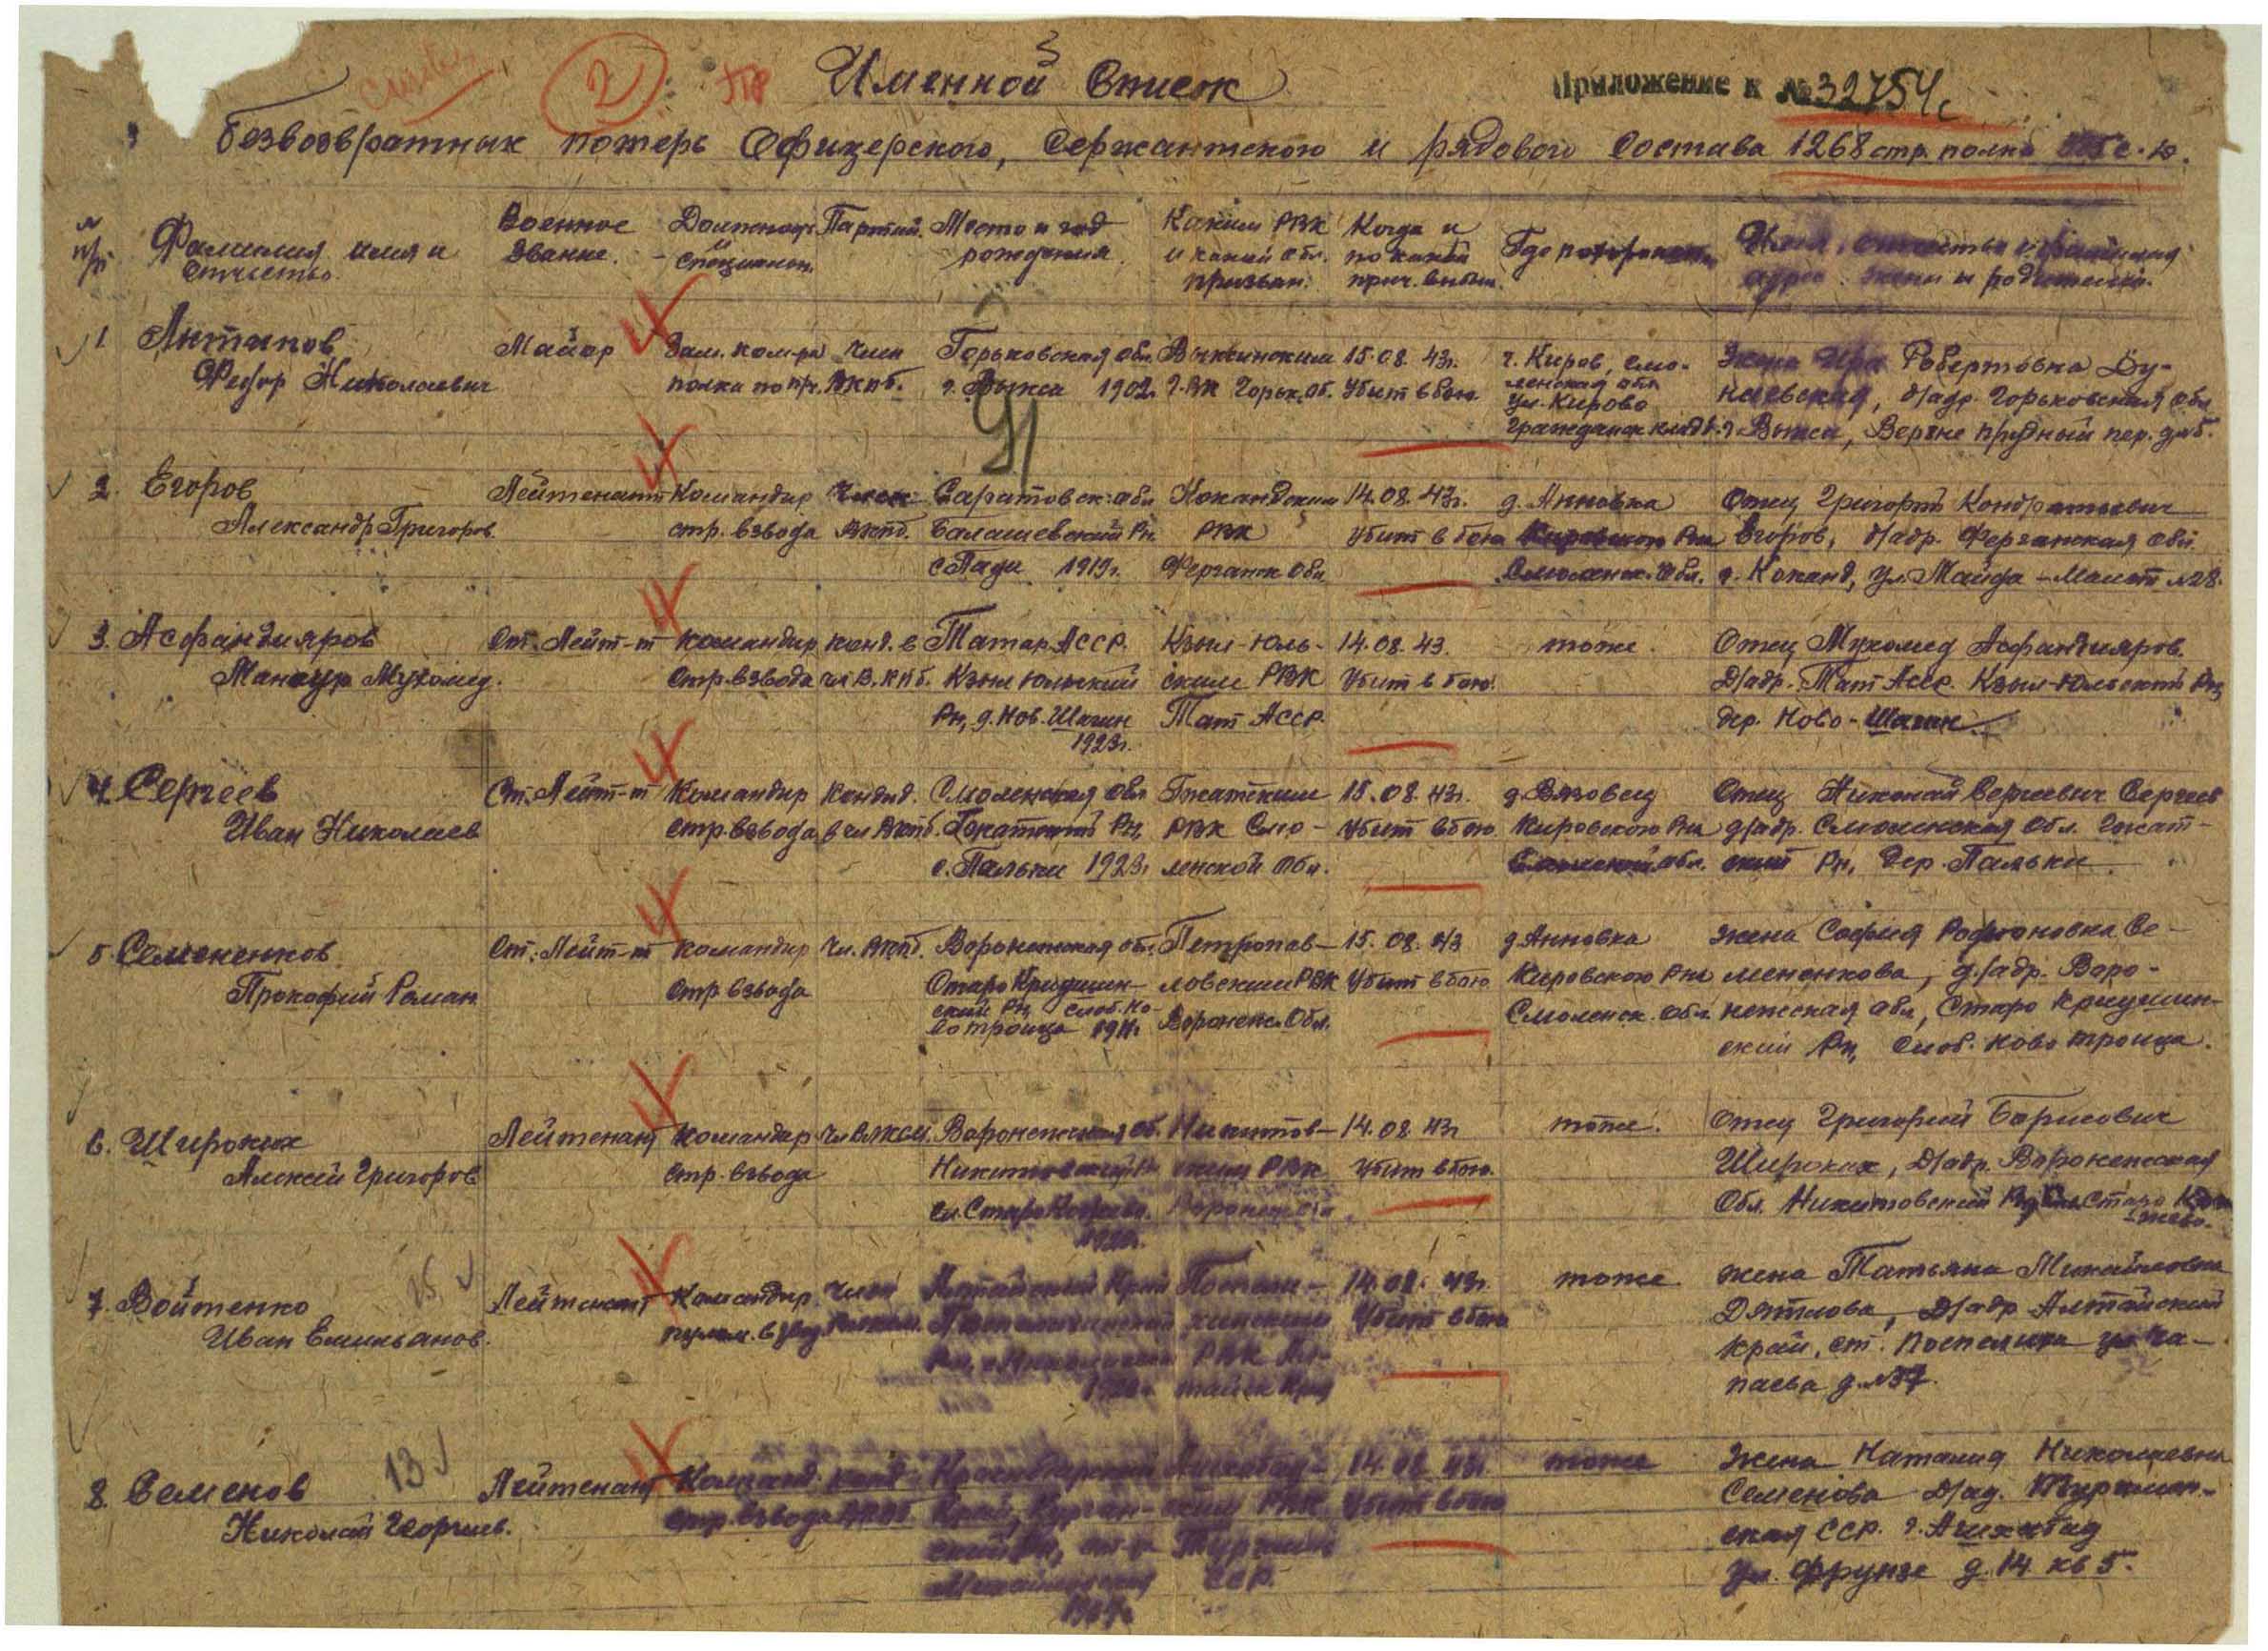 2
Именной Список
Приложение к № 32754с
безвозвратных потерь Офицерского, Сержантского и рядового состава 1268 стр. полка
№ п/п
Фамилия имя и отчество
Военное звание.
Должность и специальн.
Партийн.
Место и год рождения.
Каким РВК и какой обл. призван.
Когда и по какой прич. выбыл.
Где похоронен
адрес жены и родителей.
1. Антипов
Федор Николаевич
Майор
Зам. ком-ра
полка по п/ч.
Член
ВКПб.
Горьковская обл.
г. Выкса 1902г.
Выксинским
Г.ВК Горьк. об.
15.08.43г.
Убит в бою.
г. Киров, Смо-
ленская обл
ул. Кирова
Гражданск кладб.
Жена Робертовна Бу-
д/адр. Горьковская обл
г Выкса, Верхне прудный пер. д №5.
2. Егоров
Александр Григоров.
Лейтенант
Командир
стр. взвода
Член
ВКПб.
Саратовск. обл
Балашевский Рн.
1919г.
Кокандским
РВК
Ферганск обл
14.08.43г.
Убит в бою
д. Анновка
Кировского Рна
Смоленск. Обл.
Отец Григорий Кондратьевич
Егоров, д/адр. Ферганская обл.
г. Коканд, ул. №28.
3. Асфандияров
Мансур Мухомед.
Ст. Лейт-т
командир
Стр. взвода
канд. в
чл В.КПб.
Татар. АССР.
Кзыл Юльский
Рн, д. Нов. Шагин
1923г.
Кзыл-Юль-
ским РВК
Тат АССР.
14.08.43.
Убит в бою.
тоже.
Отец Мухомед Асфандияров.
Д/адр. Тат Асср. Кзыл-Юльский Рн,
дер. Ново-Шагин.
4. Сергеев
Иван Николаев
Ст. Лейт-т
Командир
стр. взвода
Кандид.
в чл ВКПб.
Смоленская обл
Гжатский Рн,
с. Пальки 1923г
Гжатским
РВК Смо-
ленской обл.
15.08.43г.
Убит в бою
д. Вязовец
Кировского Рна
обл.
Отец Николай Сергеевич Сергеев
д/адр. Смоленская обл. Гжат-
ский Рн, дер. Пальки.
5. Семененков
Прокофий Роман
Ст. Лейт-т
командир
стр взвода
Чл. ВКПб.
Воронежская обл.
Старо Криушин-
ский Рн, слоб. Но-
во троица 1911г
Петропав-
ловским РВК
Воронеж. Обл.
15.08.43
Убит в бою
д Анновка
Кировского Рна
Смоленск. обл.
Жена София Родионовна Се-
мененкова, д/адр. Воро-
нежская обл, Старо Криушин-
ский Рн, Слоб. Ново троица.
6. Широких
Алексей Григоров
Лейтенант
командир
стр. взвода
Чл ВЛКСМ.
Воронежская об.
Никитовский Рн
Никитов-
ским РВК
14.08.43г
Убит в бою.
тоже.
Отец Григорий Борисович
Широких, Д/адр. Воронежская
Обл. Никитовский Рн, Старо
7. Войтенко
15
Иван Емильянов.
Лейтенант
Командир
пулем. взвод
Член
Алтайский Край
Поспели-
хинским
РВК Ал-
тайск Края
14.08.43г.
Убит в бою
тоже
Жена Татьяна Михайловна
Дятлова, Д/адр Алтайский
край, ст. Поспелиха ул Ча-
паева д. №37.
8. Семенов
13
Николай Георгиев.
Лейтенант
Команд.
стр. взвода
канд.
ВКПб.
Краснодарский
Край, Курган-
Ашхабад-
ским РВК
Туркмен
ССР.
14.08.43г.
Убит в бою
тоже
Жена Наталия Николаевна
Семенова Д/ад. Туркмен-
ская ССР. г. Ашхабад
ул. Фрунзе д. 14 кв 5.